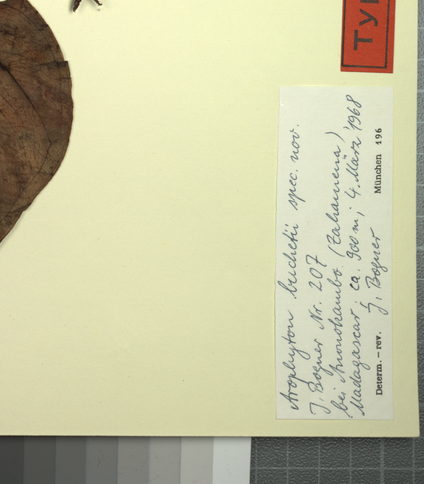 TYP
Arophyton buchetii spec. nov.
J. Bogner Nr. 207
bei Amonohambo (Zahamena)
Madagascar; ca. 900 m; 4. März 1968
Determ.-rev. J. Bogner München 196